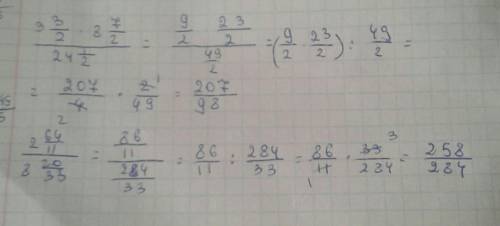 3 3/2 · 8 7/2 / 24 1/2 = 9/2 23/2 / 49/2 = (9/2 · 23/2) : 49/2 =
= 207/4 2 · 2 1/49 = 207/98
2 64/11 / 8 20/33 = 86/11 / 284/33 = 86/11 : 284/33 = 86/11 1 · 33 3/284 = 258/284